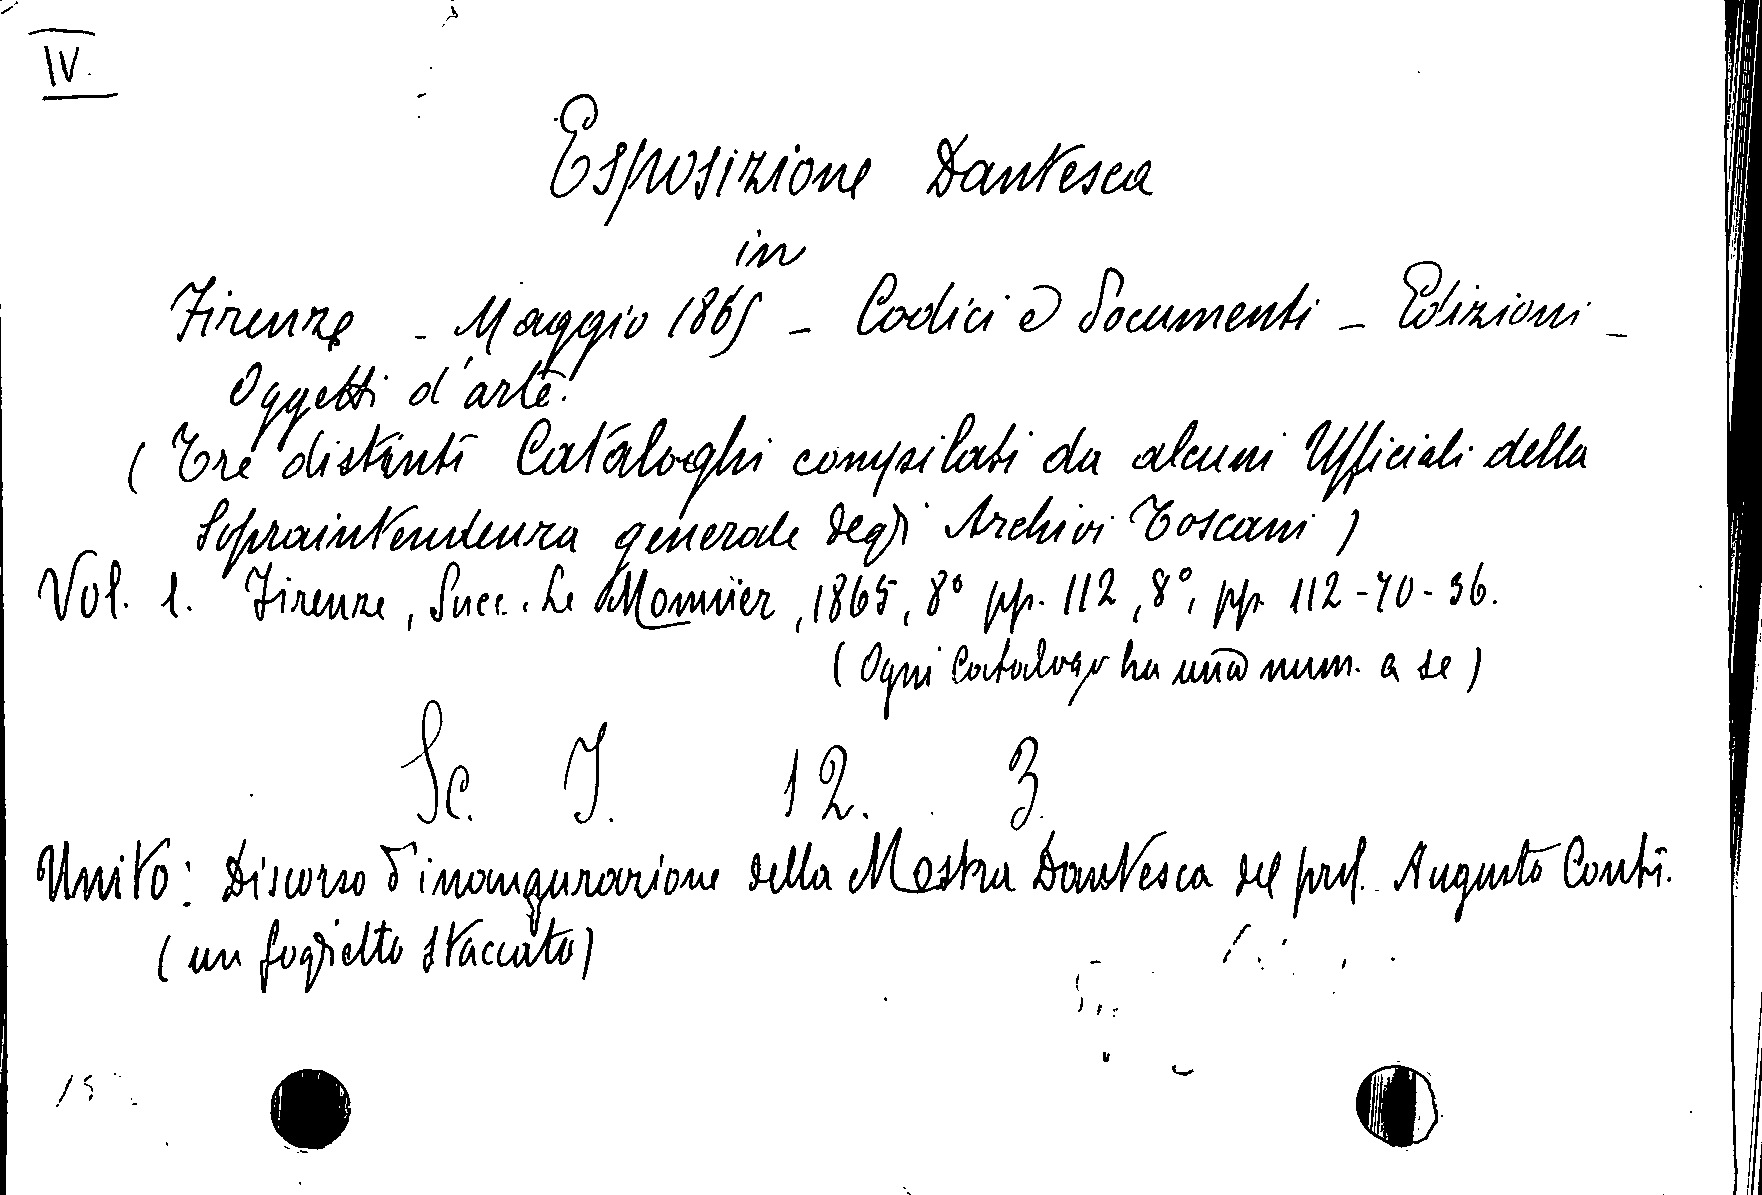 IV.
Esposizione Dantesca
in
Firenze - Maggio 1865 - Codici e documenti - Edizioni -
Oggetti d'arte.
(Tre distinti Cataloghi compilati da alcuni Ufficiali della
Sopraintendenza generale degli Archivi Toscani)
Vol. 1. Firenze, Succ. Le Monnier, 1865, 8° pp. 112, 8°, pp. 112-70-36.
(Ogni catalogo ha una num. a se)
Sc. I. 12. 3.
Unito: Discorso d'inaugurazione della Mostra Dantesca del prof. Augusto Conti.
(un foglietto staccato)